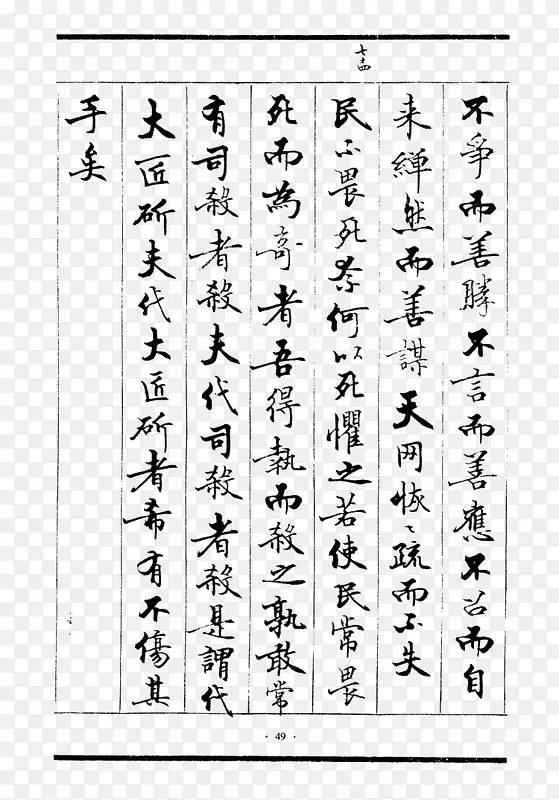 七十四
不爭而善勝不言而善應不召而自
来繟然而善謀天网恢々疏而不失
民不畏死奈何以死懼之若使民常畏
死而為奇者吾得執而殺之孰敢常
有司殺者殺夫代司殺者殺是謂代
大匠斫夫代大匠斫者希有不傷其
手矣
· 49 ·